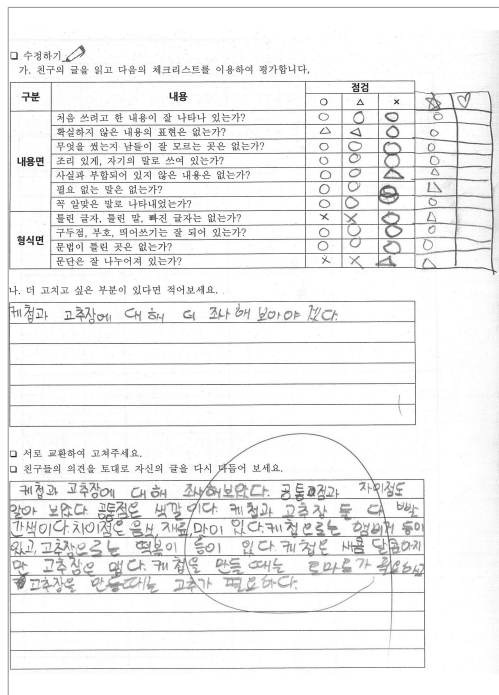 □ 수정하기
가. 친구의 글을 읽고 다음의 체크리스트를 이용하여 평가합니다.
구분 내용 점검
○ △ × ☆ ♡
내용면
처음 쓰려고 한 내용이 잘 나타나 있는가? ○ ○ ○ ○
확실하지 않은 내용의 표현은 없는가? △ △ ○ ○
무엇을 썼는지 남들이 잘 모르는 곳은 없는가? ○ ○ ○ ○
조리 있게, 자기의 말로 쓰여 있는가? ○ ○ ○ ○
사실과 부합되어 있지 않은 내용은 없는가? ○ ○ △ △
필요 없는 말은 없는가? ○ ○
꼭 알맞은 말로 나타내었는가? ○ ○ ○ ○
형식면
틀린 글자, 틀린 말, 빠진 글자는 없는가? × × ○ △
구두점, 부호, 띄어쓰기는 잘 되어 있는가? ○ ○ ○ ○
문법이 틀린 곳은 없는가? ○ ○ ○ ○
문단은 잘 나누어져 있는가? × × △ △
나. 더 고치고 싶은 부분이 있다면 적어보세요.
케첩과 고추장에 대해 더 조사해 보아야 겠다.
□ 서로 교환하여 고쳐주세요.
□ 친구들의 의견을 토대로 자신의 글을 다시 다듬어 보세요.
케첩과 고추장에 대해 조사해보았다. 공통점과 차이점도
알아 보았다. 공통점은 색깔이다. 케첩과 고추장 둘 다 빨
간색이다. 차이점은 음식, 재료, 맛이 있다. 케첩으로는 햄버거 등이
있고, 고추장으로는 떡볶이 등이 있다. 케첩은 새콤 달콤하지
만 고추장은 맵다. 케첩을 만들 때는 토마토가 필요하고
고추장을 만들 때는 고추가 필요하다.